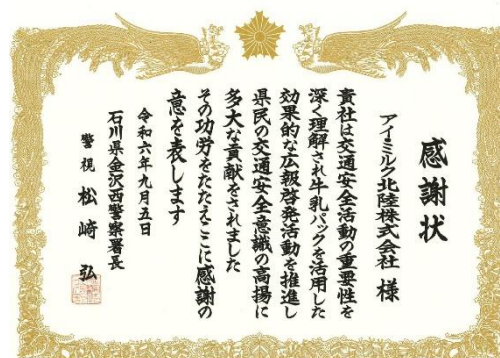 感謝状
アイミルク北陸株式会社 様
貴社は交通安全活動の重要性を
深く理解され牛乳パックを活用した
効果的な広報啓発活動を推進し
県民の交通安全意識の高揚に
多大な貢献をされました
その功労をたたえここに感謝の
意を表します
令和六年九月五日
石川県金沢西警察署長
警視 松崎 弘